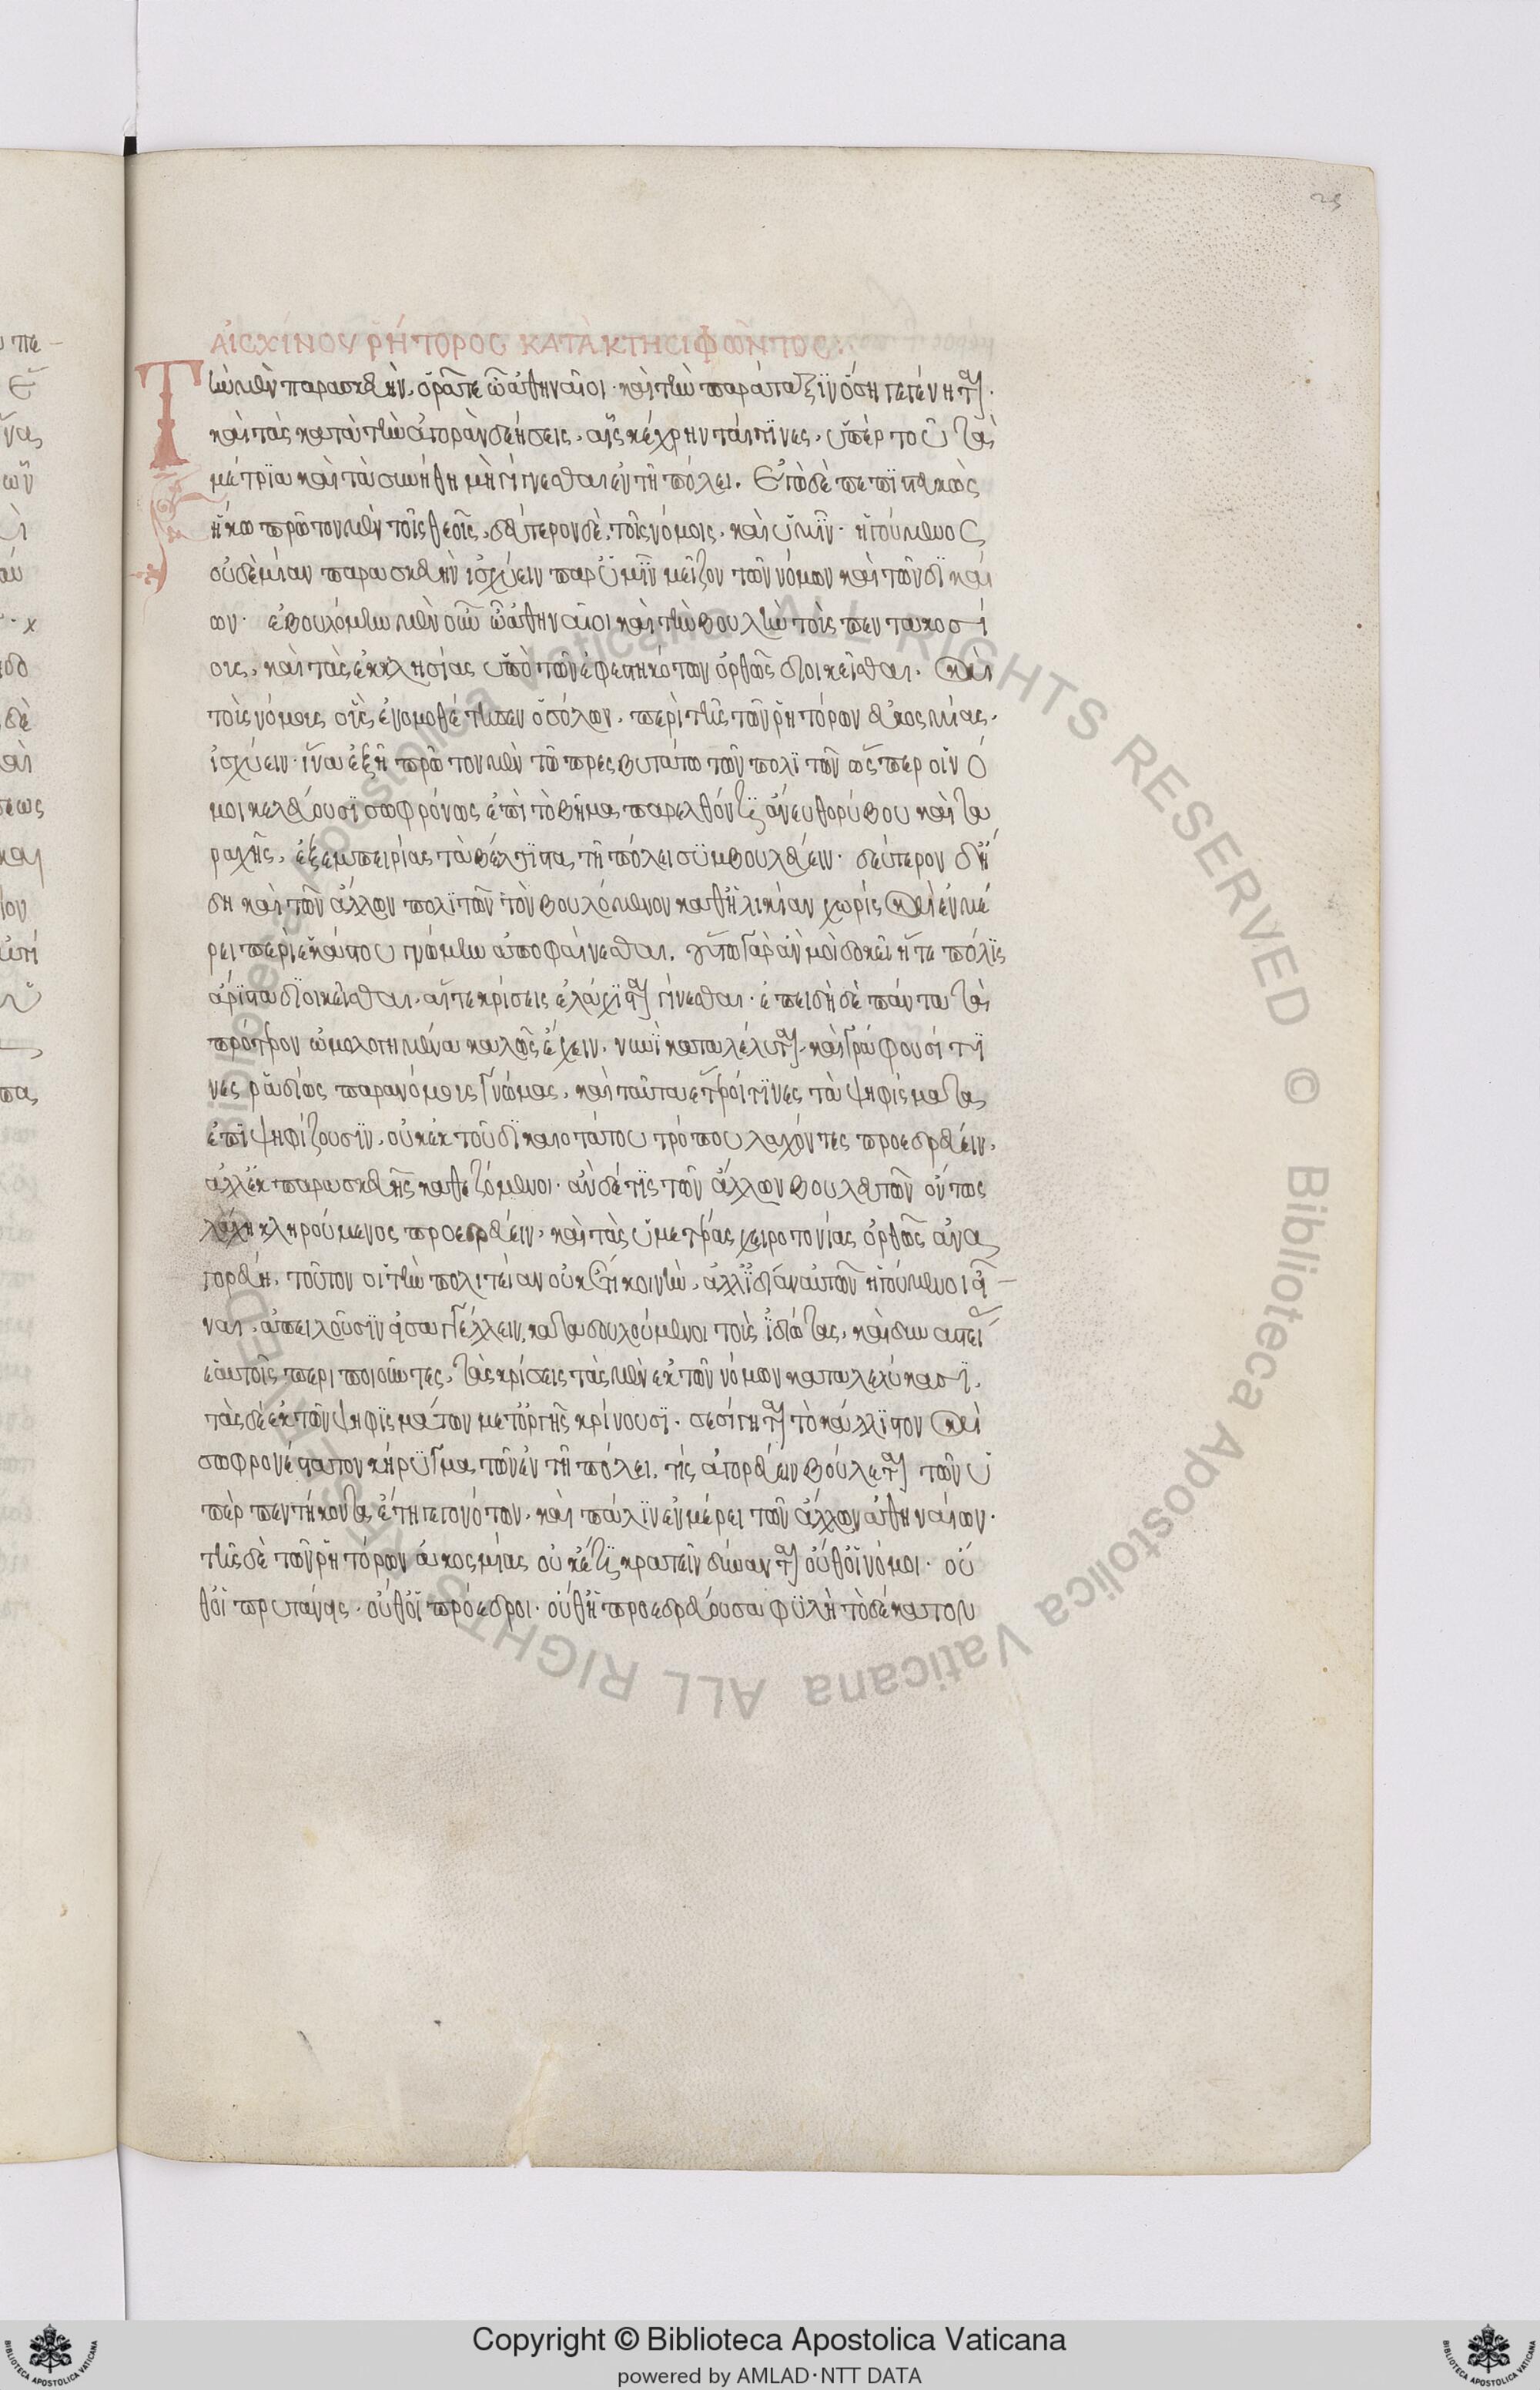 ΑἸΣΧΊΝΟΥ ῬΉΤΟΡΟΣ ΚΑΤᾺ ΚΤΗΣΙΦῶΝΤΟΣ:
Τὴν μὲν παρασκευὴν, ὁρᾶτε ὦ ἀθηναῖοι· καὶ τὴν παράταξιν ὅση γεγένηται·
καὶ τὰς κατὰ τὴν ἀγορὰν δεήσεις, αἷς κέχρηνταί τινες, ὑπὲρ τοῦ τὰ
μέτρια καὶ τὰ συνήθη μὴ γίγνεσθαι ἐν τῇ πόλει. Ἐγὼ δὲ πεπιστευκὼς
ἥκω πρῶτον μὲν τοῖς θεοῖς, δεύτερον δὲ, τοῖς νόμοις, καὶ ὑμῖν· ἡγούμενος
οὐδεμίαν παρασκευὴν ἰσχύειν παρ ὑμῖν μεῖζον τῶν νόμων καὶ τῶν δικαί
ων· ἐβουλόμην μὲν οὖν ὦ ἀθηναῖοι καὶ τὴν βουλὴν τοὺς πεντακοσί
ους, καὶ τὰς ἐκκλησίας ὑπὸ τῶν ἐφεστηκότων ὀρθῶς διοικεῖσθαι. καὶ
τοὺς νόμους οὓς ἐνομοθέτησεν ὁ σόλων, περὶ τῆς τῶν ῥητόρων εὐκοσμίας,
ἰσχύειν· ἵνα ἐξῇ πρῶτον μὲν τῷ πρεσβυτάτῳ τῶν πολιτῶν ὥσπερ οἱ νό
μοι κελεύουσι σωφρόνως ἐπὶ τὸ βῆμα παρελθόντι ἄνευ θορύβου καὶ τα
ραχῆς, ἐξ ἐμπειρίας τὰ βέλτιστα τῇ πόλει συμβουλεύειν· δεύτερον δ ἤ
δη καὶ τῶν ἄλλων πολιτῶν τὸν βουλόμενον καθ ἡλικίαν χωρὶς καὶ ἐν μέ
ρει περὶ ἑκάστου γνώμην ἀποφαίνεσθαι. οὕτω γὰρ ἄν μοι δοκεῖ ἥ τε πόλις
ἄριστα διοικεῖσθαι, αἵ τε κρίσεις ἐλάχισται γίνεσθαι· ἐπειδὴ δὲ πάντα τὰ
πρότερον ὡμολογημένα καλῶς ἔχειν, νυνὶ καταλέλυται, καὶ γράφουσί τι
νες ῥᾳδίως παρανόμους γνώμας, καὶ ταῦτα ἕτεροί τινες τὰ ψηφίσματα
ἐπιψηφίζουσιν, οὐκ ἐκ τοῦ δικαιοτάτου τρόπου λαχόντες προεδρεύειν,
ἀλλ ἐκ παρασκευῆς καθεζόμενοι· ἂν δέ τις τῶν ἄλλων βουλευτῶν ὄντως
λάχῃ κληρούμενος προεδρεύειν, καὶ τὰς ὑμετέρας χειροτονίας ὀρθῶς ἀνα
γορεύῃ, τοῦτον οἱ τὴν πολιτείαν οὐκέτι κοινὴν, ἀλλ ἰδίαν αὑτῶν ἡγούμενοι εἶ
ναι, ἀπειλοῦσιν εἰσαγγέλλειν, καταδουλούμενοι τοὺς ἰδιώτας, καὶ δυναστεί
ἑαυτοῖς περιποιοῦντες, τὰς κρίσεις τὰς μὲν ἐκ τῶν νόμων καταλελύκασι,
τὰς δὲ ἐκ τῶν ψηφισμάτων μετ ὀργῆς κρίνουσι· σεσίγηται τὸ κάλλιστον καὶ
σωφρονέστατον κήρυγμα τῶν ἐν τῇ πόλει, τίς ἀγορεύειν βούλεται τῶν ὑ
πὲρ πεντήκοντα ἔτη γεγονότων, καὶ πάλιν ἐν μέρει τῶν ἄλλων ἀθηναίων·
τῆς δὲ τῶν ῥητόρων ἀκοσμίας οὐκέτι κρατεῖν δύνανται οὔθ οἱ νόμοι· οὔ
θ οἱ πρυτάνεις· οὔθ οἱ πρόεδροι· οὔθ ἡ προεδρεύουσα φυλὴ τὸ δέκατον
Copyright © Biblioteca Apostolica Vaticana
powered by AMLAD·NTT DATA